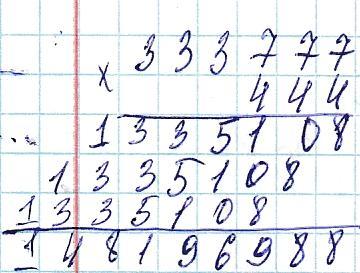 333777
x 444
1335108
1335108
1335108
148196988